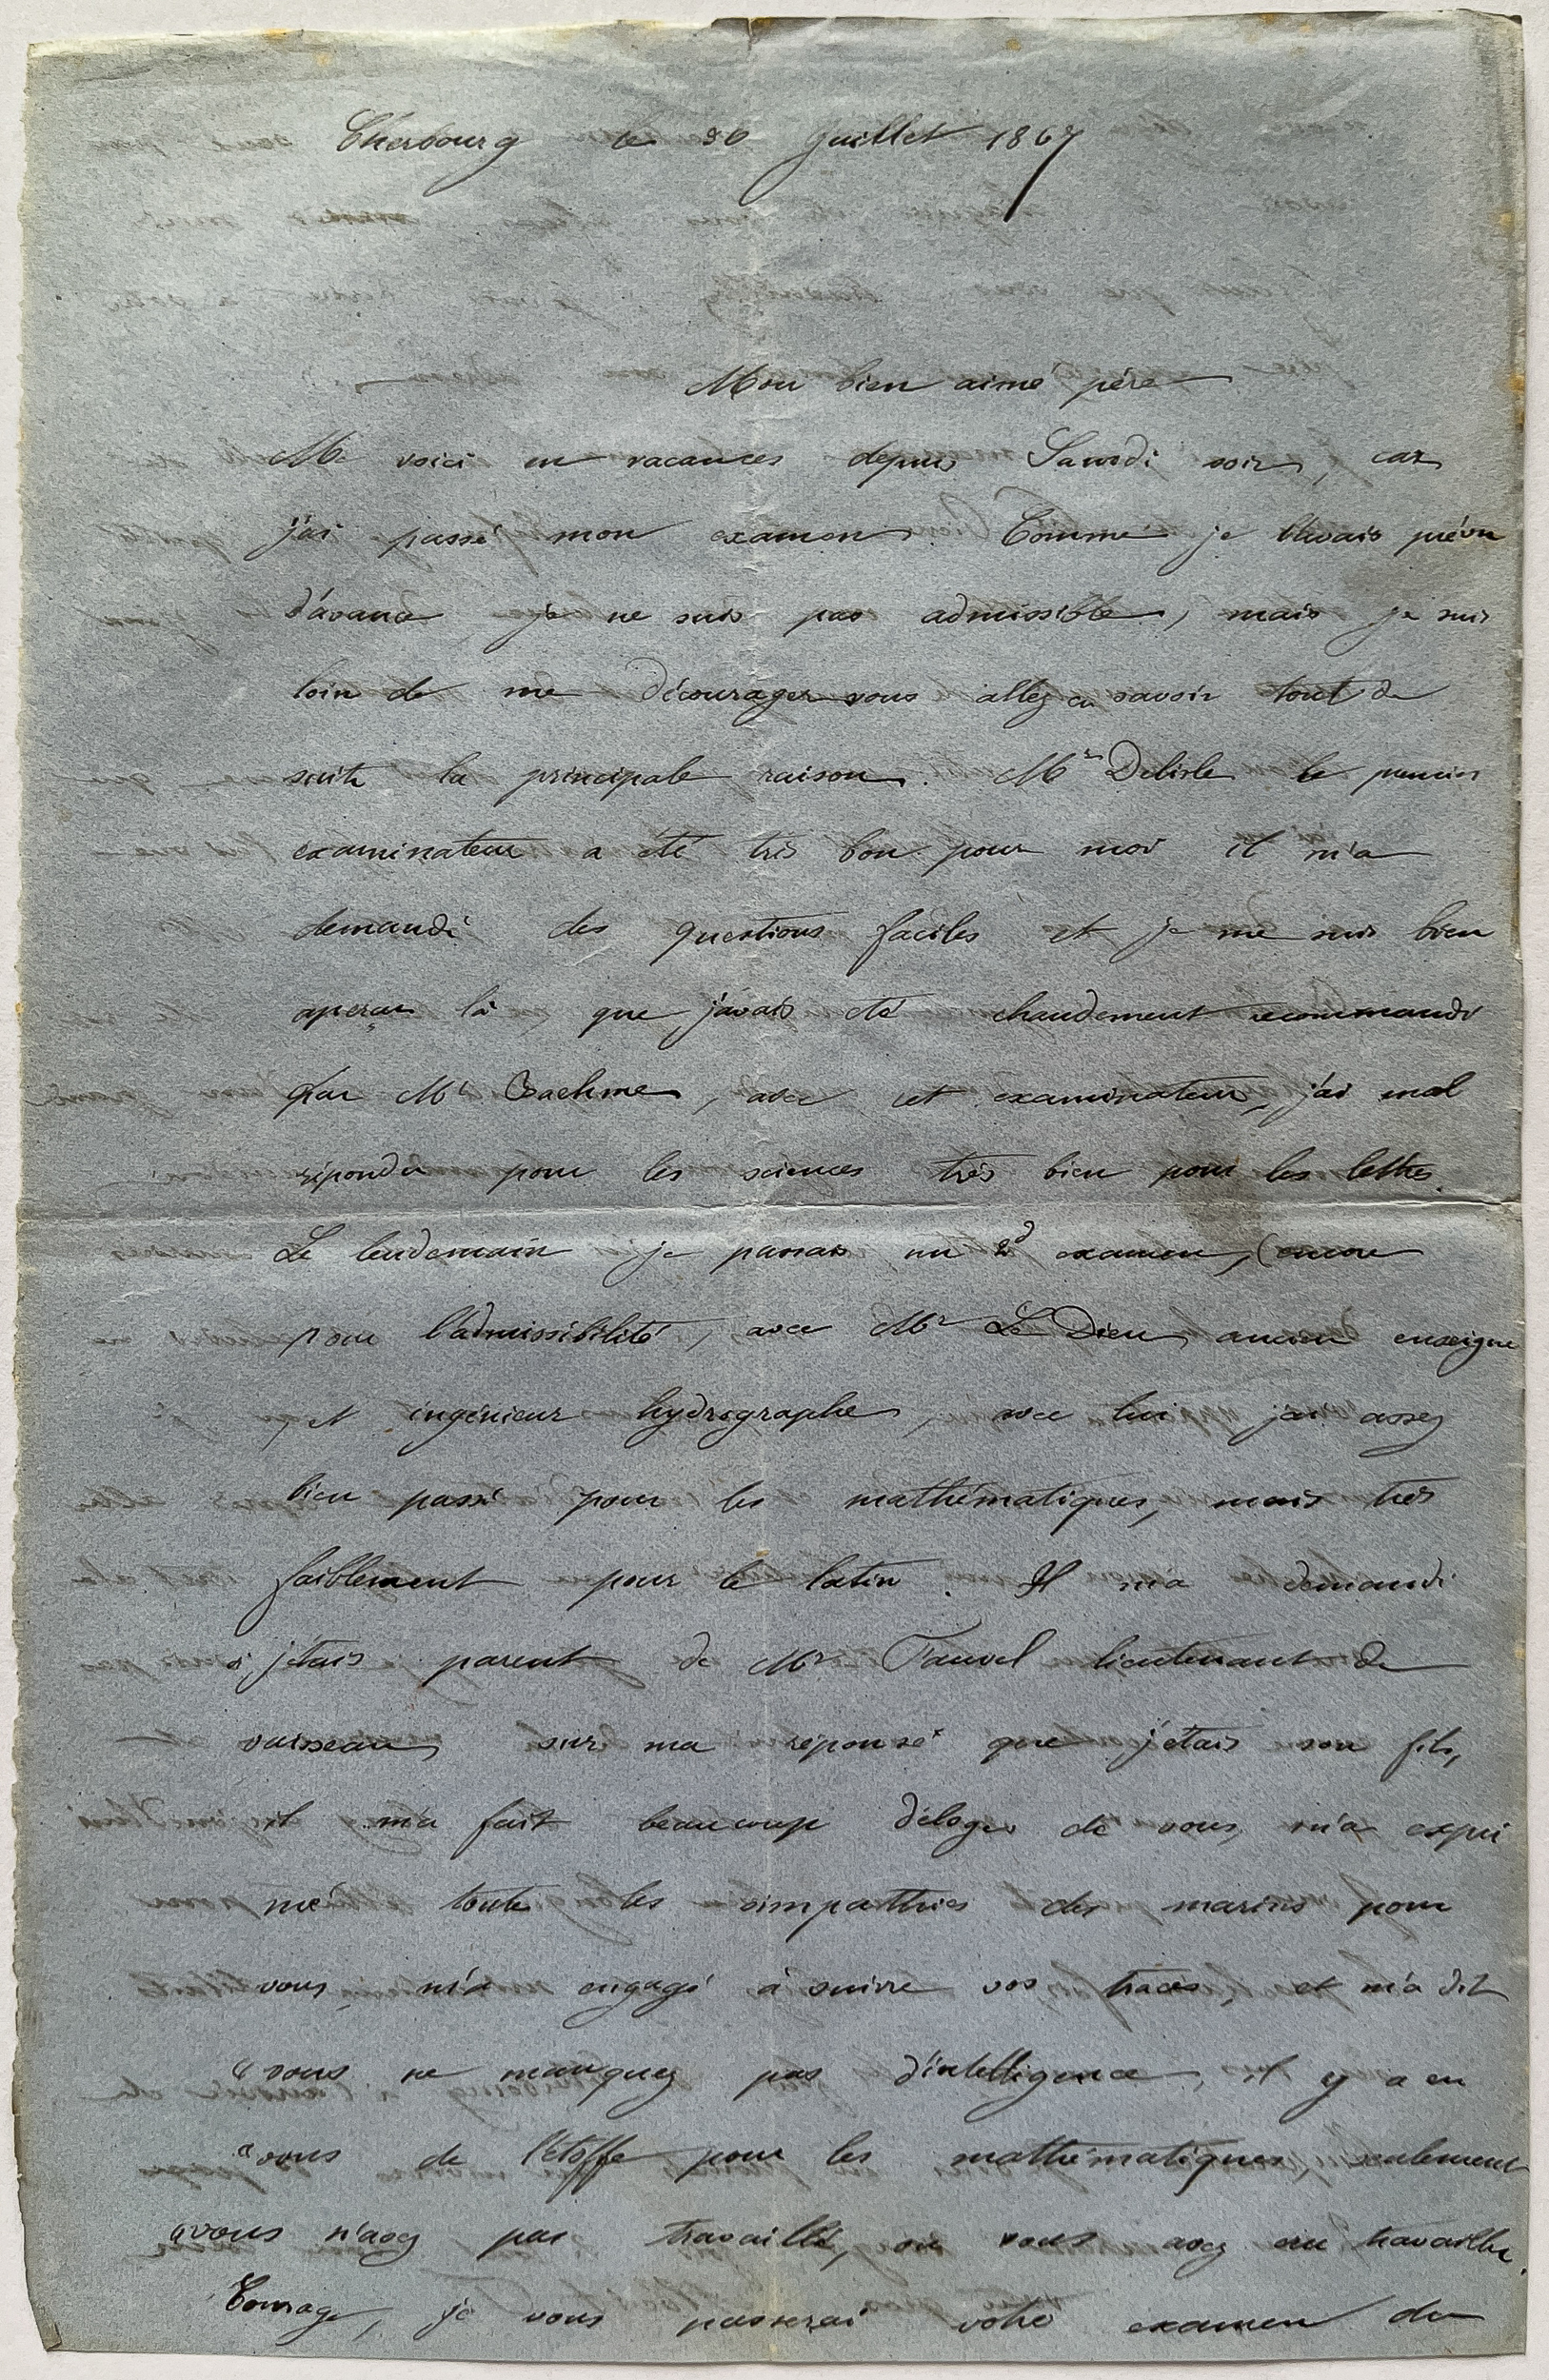 Cherbourg le 30 Juillet 1867
Mon bien aimé père
Me voici en vacances depuis Samedi soir, car
j'ai passé mon examen. Comme je l'avais prévu
d'avance je ne suis pas admissible, mais je suis
loin de me décourager vous allez en savoir tout de
suite la principale raison. Mr Delisle le premier
examinateur a été très bon pour moi il m'a
demandé des questions faciles et je me suis bien
aperçu là, que j'avais été chaudement recommandé
par Mr , avec cet examinateur, j'ai mal
répondu pour les sciences très bien pour les lettres.
Le lendemain je passais un 2d examen, (encore
pour l'admissibilité, avec Mr Le Dieu, ancien enseigne
, et ingénieur hydrographe, avec lui j'ai assez
bien passé pour les mathématiques, mais très
faiblement pour le latin. Il m'a demandé
si j'étais parent de Mr Fauvel lieutenant de
vaisseau, sur ma réponse que j'étais son fils,
il m'a fait beaucoup d'éloges de vous, m'a expri
mé toute les simpathies des marins pour
vous, m'a engagé à suivre vos traces, et m'a dit
"vous ne manquez pas d'intelligence, il y a en
"vous de l'étoffe pour les mathématiques, seulement
"vous n'avez pas travaillé, ou vous avez mal travaillé.
Courage, je vous passerai votre examen du